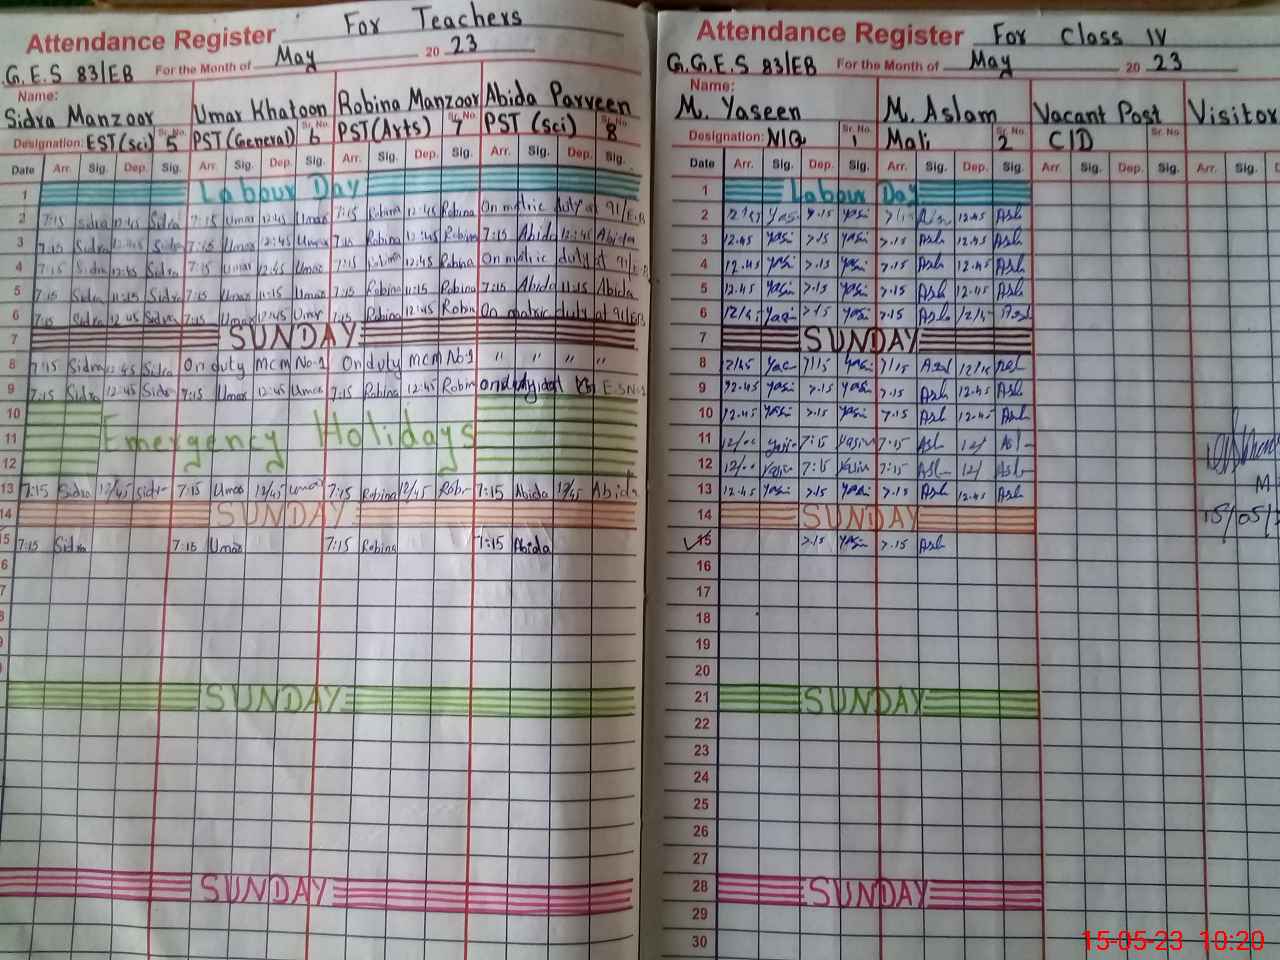 Attendance Register For Teachers
G.E.S 83/EB For the Month of May 2023
Name:
Sidra Manzoor Umar Khatoon Robina Manzoor Abida Parveen
Designation: EST(sci) Sr. No. 5 PST(General) Sr. No. 6 PST(Arts) Sr. No. 7 PST (sci) Sr. No. 8
Date Arr. Sig. Dep. Sig. Arr. Sig. Dep. Sig. Arr. Sig. Dep. Sig. Arr. Sig. Dep. Sig.
1 Labour Day
2 7:15 Sidra 12:45 Sidra 7:15 Umar 12:45 Umar 7:15 Robina 12:45 Robina On metric duty at 91/E.B
3 7:15 Sidra 12:45 Sidra 7:15 Umar 12:45 Umar 7:15 Robina 12:45 Robina 7:15 Abida 12:45 Abida
4 7:15 Sidra 12:45 Sidra 7:15 Umar 12:45 Umar 7:15 Robina 12:45 Robina On matric duty at 91/E.B
5 7:15 Sidra 11:15 Sidra 7:15 Umar 11:15 Umar 7:15 Robina 11:15 Robina 7:15 Abida 11:15 Abida
6 7:15 Sidra 12:45 Sidra 7:15 Umar 12:45 Umar 7:15 Robina 12:45 Robin On matric duty at 91/EB
7 SUNDAY
8 7:15 Sidra 12:45 Sidra On duty MCM No-1 On duty MCM No-1 " " " "
9 7:15 Sidra 12:45 Sidra 7:15 Umar 12:45 Umar 7:15 Robina 12:45 Robin On duty at E.S No-1
10
11 Emergency Holidays
12
13 7:15 Sidra 12/45 Sidr 7:15 Umar 12/45 Umar 7:15 Robina 12/45 Robr 7:15 Abida 12/45 Abida
14 SUNDAY
15 7:15 Sidra 7:15 Umar 7:15 Robina 7:15 Abida
SUNDAY
SUNDAY
Attendance Register For Class IV
G.G.E.S 83/EB For the Month of May 2023
Name:
M. Yaseen M. Aslam Vacant Post Visitor
Designation: N/Q Sr. No. 1 Mali Sr. No. 2 CID Sr. No.
Date Arr. Sig. Dep. Sig. Arr. Sig. Dep. Sig. Arr. Sig. Dep. Sig. Arr. Sig.
1 Labour Day
2 12:45 Yasi 7.15 Yasi 7.15 12.45 Asl
3 12.45 Yasi 7.15 Yasi 7.15 Asl 12.45 Asl
4 12.45 Yasi 7.15 Yasi 7.15 Asl 12.45 Asl
5 12.45 Yasi 7.15 Yasi 7.15 Asl 12.45 Asl
6 12/45 Yasi 7.15 Yasi 7.15 Asl
7 SUNDAY
8 12/45 7/15 Yasi 7/15 Asl
9 12.45 Yasi 7.15 Yasi 7.15 Asl 12.45 Asl
10 12.45 Yasi 7.15 Yasi 7.15 Asl 12.45 Asl
11 12/00 7:15 Yasin 7:15 Asl 12/ Asl
12 12/00 Yasin 7:15 Yasin 7:15 Asl 12/ Asl
13 12.45 Yasi 7.15 Yasi 7.15 Asl 12.45 Asl
14 SUNDAY
15 7.15 Yasi 7.15 Asl
15/05/
16
17
18
19
20
21 SUNDAY
22
23
24
25
26
27
28 SUNDAY
29
30
15-05-23 10:20